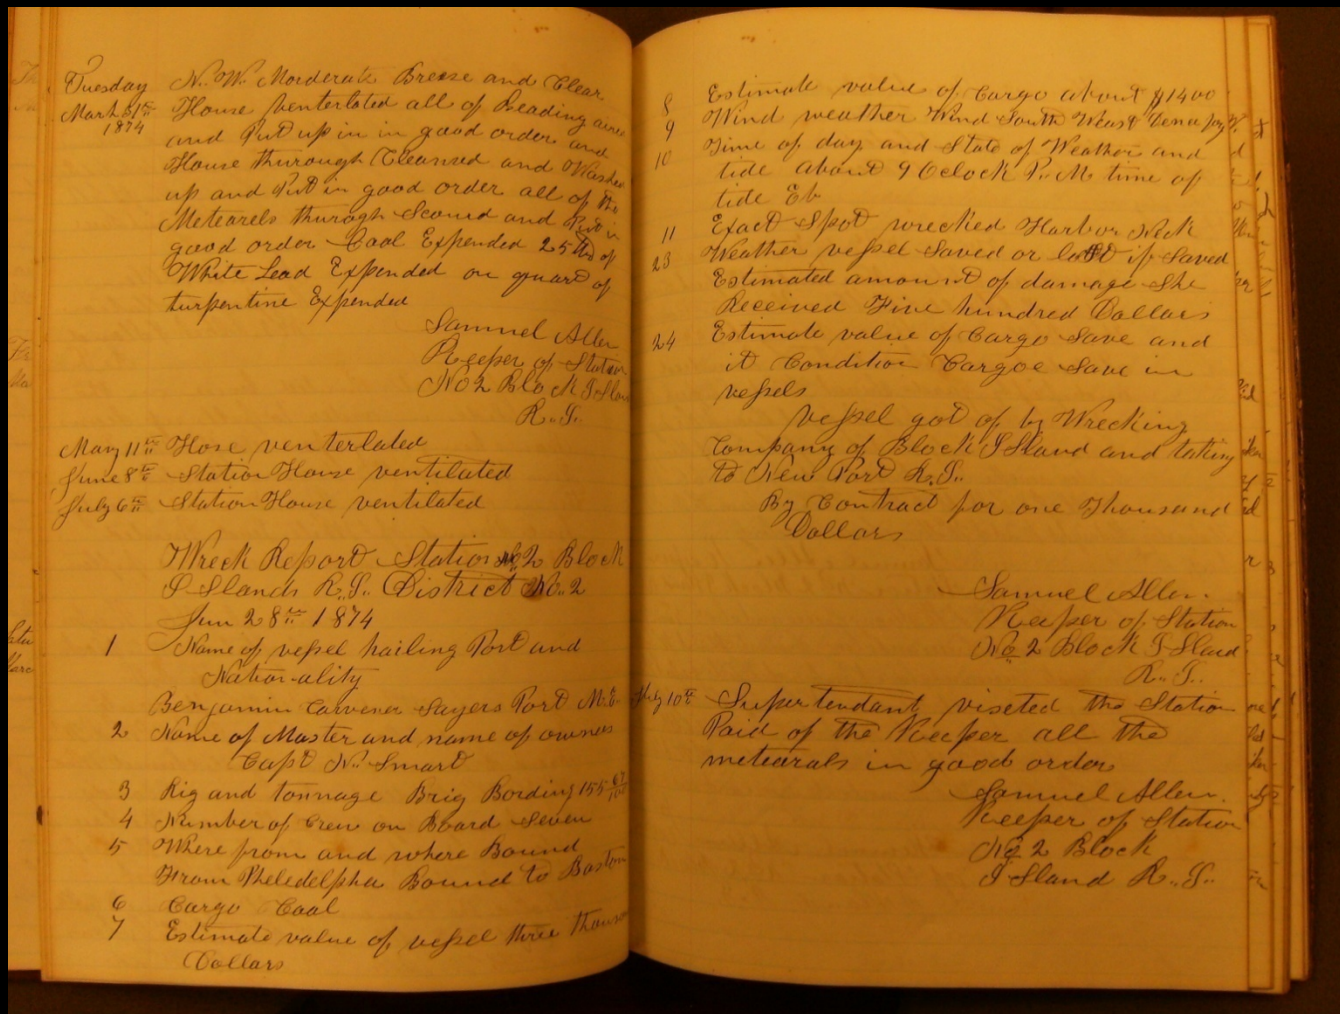 Tuesday N.. W. Morderate Breese and Clear
March 31st House venterlated all of Beading aired
1874
and Put up in in good order and
House thurough Cleansed and Washed
up and Put in good order all of the
Meterrels thurogh Scourd and Put in
good order Coal Expended 25 lbs of
White Lead Expended on quart of
turpentine Expended
Samuel Allen
Keeper of Station
No 2 Block I Sland
R.. I..
Mary 11th Hose venterlated
June 8th Station House ventilated
July 6th Station House ventilated
Wreck Report Station No 2 Block
I Slands R.. I.. District No.. 2
Jun 28th 1874
1 Name of vessel hailing Port and
Nationality
Benjamin Carvener Sayers Port M.E.
2 Name of Master and name of owners
Capt N.. Smart
3 Rig and tonnage Brig Bording 155 67/100
4 Number of Crew on Board Seven
5 Where from and where Bound
From Pheledelpha Bound to Boston
6 Cargo Coal
7 Estimate value of vessel three thousand
Dollars
8 Estimate value of Cargo about $1400
9 Wind weather Wind South Weast
10 Time of day and State of Weather and
tide about 9 Oclock P.. M. time of
tide Eb
11 Exact Spot wrecked Harbor Neck
23 Weather vessel Saved or lost if Saved
Estimated amount of damage She
Received Five hundred Dollars
24 Estimate value of Cargo Save and
it Condition Cargoe Save in
vessels
vessel got of by Wrecking
Company of Block I Sland and taking
to New Port R.. I..
By Contract for one Thousand
Dollars
Samuel Allen.
Keeper of Station
No 2 Block I Sland
R.. I..
July 10th Supertendant viseted the Station
Paid of the Keeper all the
metearals in good order
Samuel Allen.
Keeper of Station
No 2 Block
I Sland R.. I..